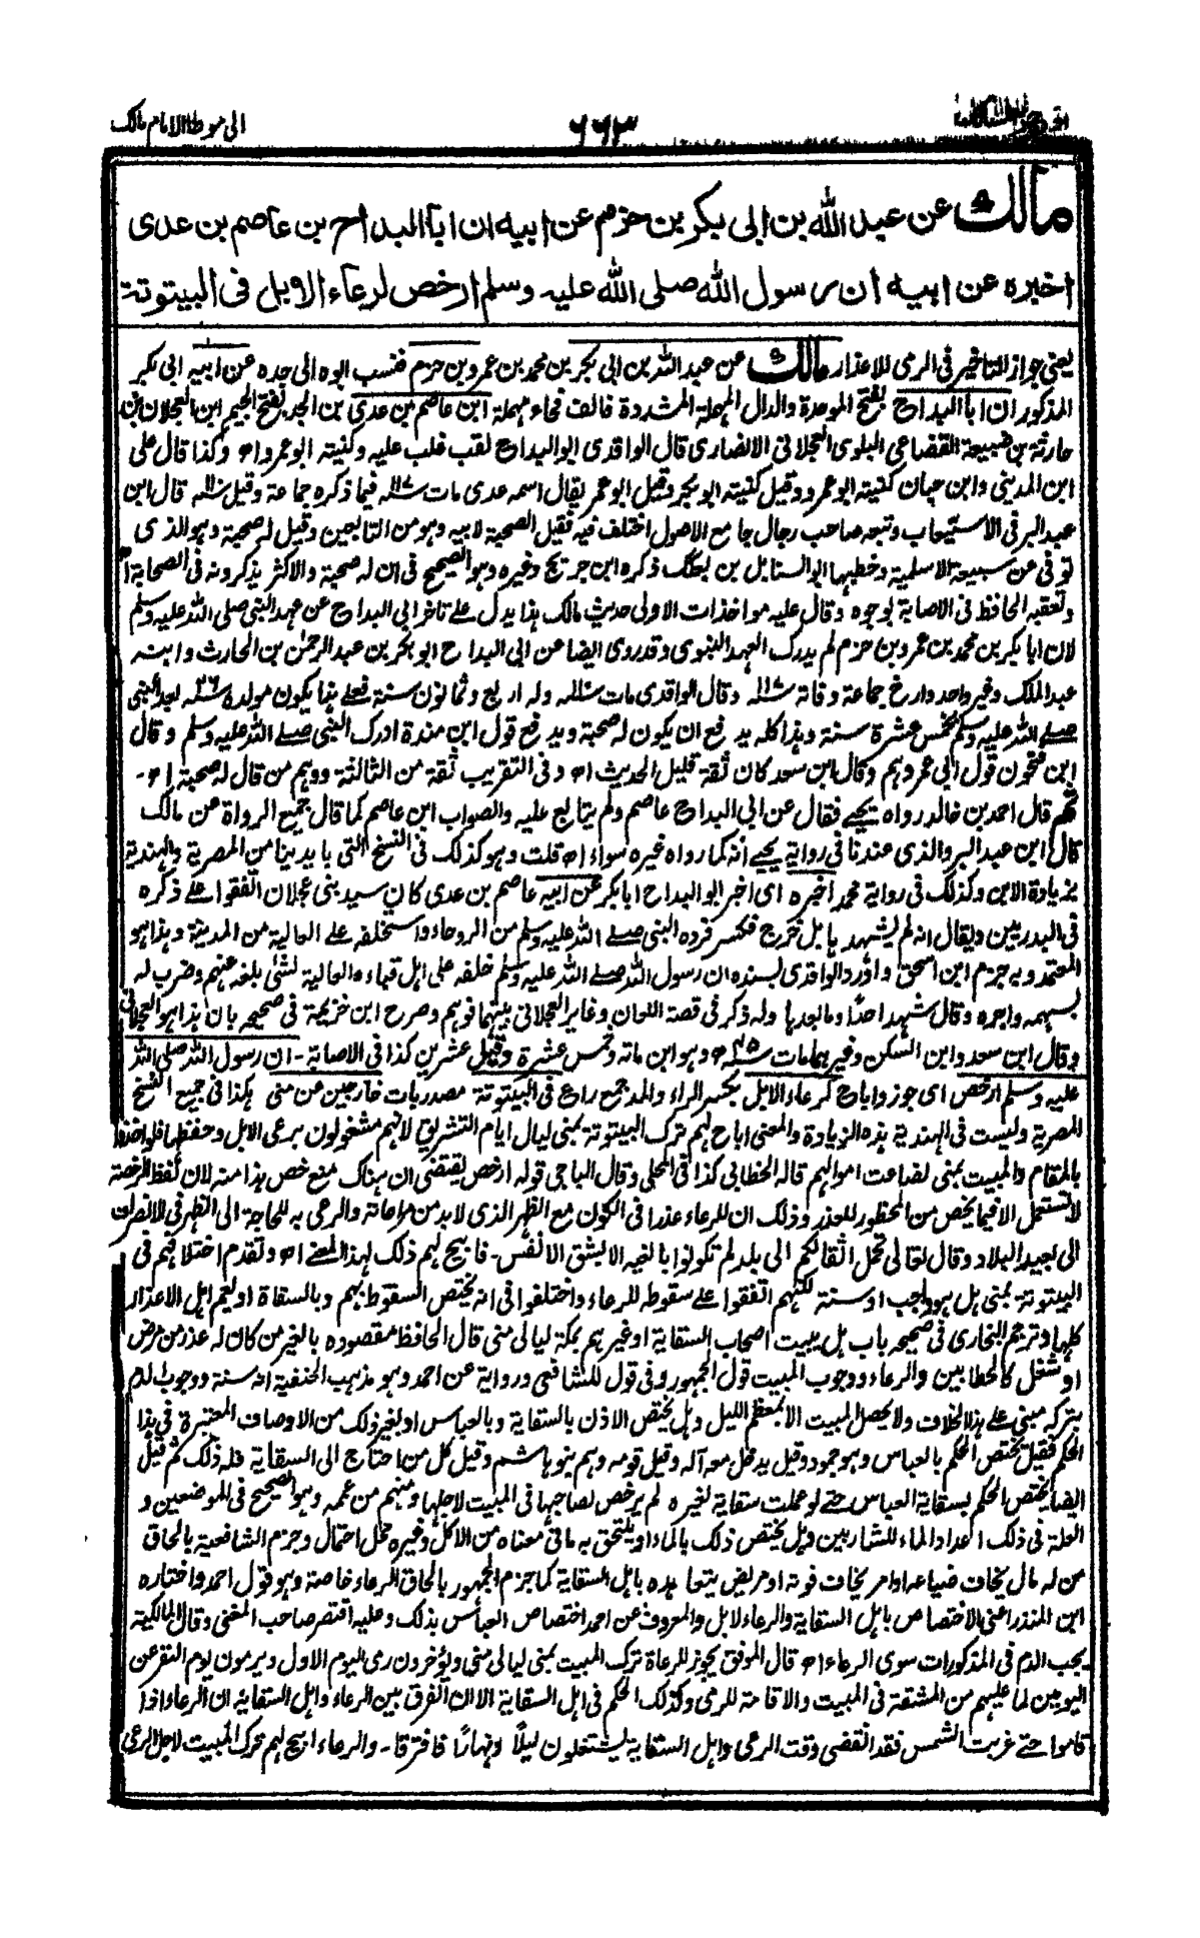 الى موطا الامام مالك
٦٦٣
مالك عن عبد الله بن ابى بكر بن حزم عن ابيه ان ابا البداح بن عاصم بن عدى
اخبره عن ابيه ان رسول الله صلى الله عليه وسلم ارخص لرعاء الابل فى البيتوتة
يعنى جواز التاخير فى الرمى للاعذار مالك عن عبد الله بن ابى بكر بن محمد بن عمرو بن حزم فنسب ابوه الى جده عن ابيه ابى بكر
المذكور ان ابا البداح بفتح الموحدة والدال المهملة المشددة فالف فحاء مهملة ابن عاصم بن عدى بن الجد بفتح الجيم ابن العجلان بن
حارثة بن ضبيعة القضاعى البلوى العجلانى الانصارى قال الواقدى ابو البداح لقب غلب عليه وكنيته ابو عمرو اه وكذا قال على
ابن المدينى وابن حبان كنيته ابو عمرو وقيل كنيته ابو بكر وقيل ابو عمر يقال اسمه عدى مات سنة ١١٧ فيما ذكره جماعة وقيل سنة ١١٠ قال ابن
عبد البر فى الاستيعاب وتبعه صاحب رجال جامع الاصول اختلف فيه فقيل الصحبة لابيه وهو من التابعين وقيل له صحبة وهو الذى
توفى عن سبيعة الاسلمية وخطبها ابو السنابل بن بعكك ذكره ابن جريج وغيره وهو الصحيح فى ان له صحبة والاكثر يذكرونه فى الصحابة اه
وتعقبه الحافظ فى الاصابة بوجوه وقال عليه مواخذات الاولى حديث مالك هذا يدل على تاخر ابى البداح عن عهد النبى صلى الله عليه وسلم
لان ابا بكر بن محمد بن عمرو بن حزم لم يدرك العهد النبوى وقد روى ايضا عن ابى البداح ابو بكر بن عبد الرحمن بن الحارث وابنه
عبد الملك وغير واحد وارخ جماعة وفاته سنة ١١٧ وقال الواقدى مات سنة ١١٠ وله اربع وثمانون سنة فعلى هذا يكون مولده سنة ٢٦ بعد النبى
صلى الله عليه وسلم بخمس عشرة سنة وهذا كله يدفع ان يكون له صحبة ويدفع قول ابن مندة ادرك النبى صلى الله عليه وسلم وقال
ابن فتحون قول ابى عمر وهم وقال ابن سعد كان ثقة قليل الحديث اه وفى التقريب ثقة من الثالثة ووهم من قال له صحبة اه -
ثم قال احمد بن خالد رواه يحيى فقال عن ابى البداح عاصم ولم يتابع عليه والصواب ابن عاصم كما قال جميع الرواة عن مالك
قال ابن عبد البر والذى عندنا فى رواية يحيى انه كما رواه غيره سواء اه قلت وهو كذلك فى النسخ التى بايدينا من المصرية والهندية
بزيادة الابن وكذلك فى رواية محمد اخبره اى اخبر ابو البداح ابا بكر عن ابيه عاصم بن عدى كان سيد بنى عجلان اتفقوا على ذكره
فى البدريين ويقال انه لم يشهد بها بل خرج فكسر فرده النبى صلى الله عليه وسلم من الروحاء واستخلفه على العالية من المدينة وهذا هو
المعتمد وبه جزم ابن اسحق واورد الواقدى بسنده ان رسول الله صلى الله عليه وسلم خلفه على اهل قباء والعالية لشئ بلغه عنهم وضرب له
بسهمه واجره وقال شهد احدا وما بعدها وله ذكر فى قصة اللعان وغاير العجلانى بينهما فوهم وصرح ابن خزيمة فى صحيحه بان هذا هو العجلانى
وقال ابن سعد وابن السكن وغيرهما مات سنة ٤٥ وهو ابن مائة وخمس عشرة وقيل عشرين كذا فى الاصابة - ان رسول الله صلى الله
عليه وسلم ارخص اى جوز واباح لرعاء الابل بكسر الراء والمد جمع راع فى البيتوتة مصدر بات خارجين عن منى هكذا فى جميع النسخ
المصرية وليست فى الهندية هذه الزيادة والمعنى اباح لهم ترك البيتوتة بمنى ليال ايام التشريق لانهم مشغولون برعى الابل وحفظها فلو اخذوا
بالمقام والمبيت بمنى لضاعت اموالهم قاله الخطابى كذا فى المحلى وقال الباجى قوله ارخص يقتضى ان هناك منع خص هذا منه لان لفظ الرخصة
لا تستعمل الا فيما يخص من المحظور للعذر وذلك ان للرعاء عذرا فى الكون مع الظهر الذى لا بد من مراعاته والرعى به للحاجة الى الظهر فى الانصراف
الى بعيد البلاد وقال تعالى وتحمل اثقالكم الى بلد لم تكونوا بالغيه الا بشق الانفس - فابيح لهم ذلك لهذا المعنى اه وتقدم اختلافهم فى
البيتوتة بمنى هل هو واجب او سنة لكنهم اتفقوا على سقوطه للرعاء واختلفوا فى انه يختص السقوط بهم وبالسقاة او يعم اهل الاعذار
كلها وترجم البخارى فى صحيحه باب هل يبيت اصحاب السقاية او غيرهم بمكة ليالى منى قال الحافظ مقصوده بالغير من كان له عذر من مرض
او شغل كالحطابين والرعاء ووجوب المبيت قول الجمهور وفى قول للشافعى ورواية عن احمد وهو مذهب الحنفية انه سنة ووجوب الدم
بتركه مبنى على هذا الخلاف ولا يحصل المبيت الا بمعظم الليل وهل يختص الاذن بالسقاية وبالعباس او بغير ذلك من الاوصاف المعتبرة فى هذا
الحكم فقيل يختص الحكم بالعباس وهو جمود وقيل يدخل معه آله وقيل قومه وهم بنو هاشم وقيل كل من احتاج الى السقاية فله ذلك ثم قيل
ايضا يختص الحكم بسقاية العباس حتى لو عملت سقاية لغيره لم يرخص لصاحبها فى المبيت لاجلها ومنهم من عممه وهو الصحيح فى الموضعين و
العلة فى ذلك اعداد الماء للشاربين وهل يختص ذلك بالماء او يلتحق به ما فى معناه من الاكل وغيره محل احتمال وجزم الشافعية بالحاق
من له مال يخاف ضياعه او امر يخاف فوته او مريض يتعاهده باهل السقاية كما جزم الجمهور بالحاق الرعاء خاصة وهو قول احمد واختاره
ابن المنذر اعنى الاختصاص باهل السقاية والرعاء لابل والمعروف عن احمد اختصاص العباس بذلك وعليه اقتصر صاحب المغنى وقال المالكية
يجب الدم فى المذكورات سوى الرعاء اه قال الموفق يجوز للرعاة ترك المبيت بمنى ليالى منى ويؤخرون رمى اليوم الاول ويرمون يوم النفر عن
اليومين لما عليهم من المشقة فى المبيت والاقامة للرمى وكذلك الحكم فى اهل السقاية الا ان الفرق بين الرعاء واهل السقاية ان الرعاء اذا
قاموا حتى غربت الشمس فقد انقضى وقت الرعى واهل السقاية يشتغلون ليلا ونهارا فافترقا - والرعاء ابيح لهم ترك المبيت لاجل الرعى